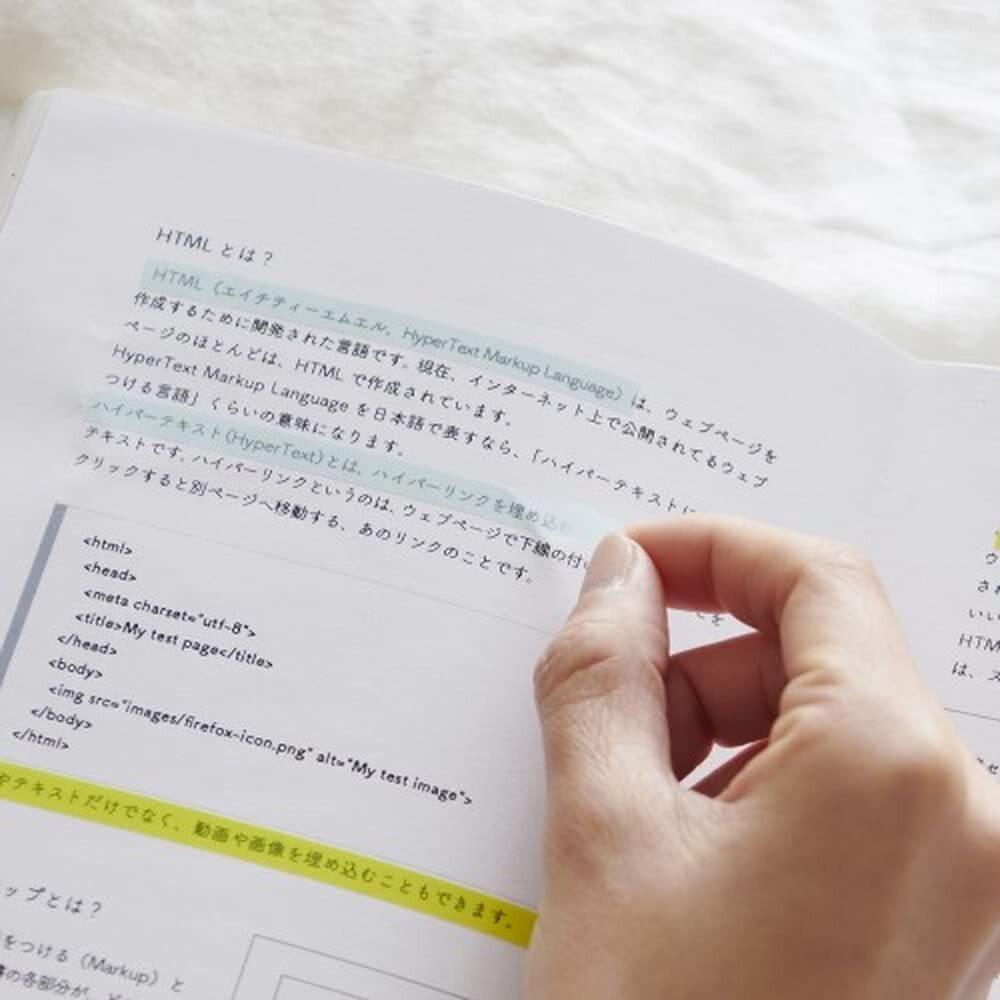 HTML とは？
HTML（エイチティーエムエル、HyperText Markup Language）は、ウェブページを
作成するために開発された言語です。現在、インターネット上で公開されてるウェブ
ページのほとんどは、HTML で作成されています。
HyperText Markup Language を日本語で表すなら、「ハイパーテキストに
つける言語」くらいの意味になります。
ハイパーテキスト（HyperText）とは、ハイパーリンクを埋め込
テキストです。ハイパーリンクというのは、ウェブページで下線の付い
クリックすると別ページへ移動する、あのリンクのことです。
<html>
<head>
<meta charset="utf-8">
<title>My test page</title>
</head>
<body>
<img src="images/firefox-icon.png" alt="My test image">
</body>
</html>
やテキストだけでなく、動画や画像を埋め込むこともできます。
ップとは？
をつける（Markup）と
の各部分が、
ウ
され
いい
HTM
は、ス